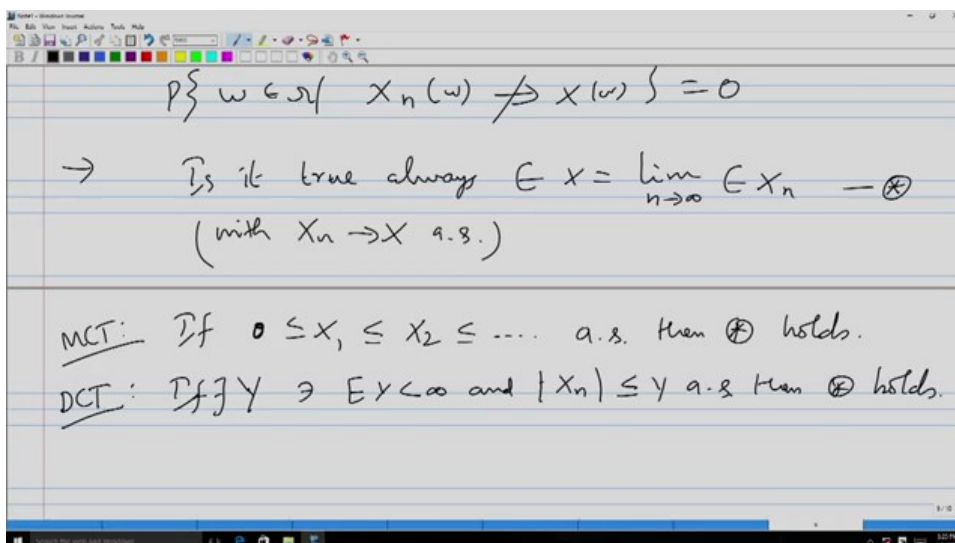 Note1 - Windows Journal
File Edit View Insert Actions Tools Help
B I
P{ ω ∈ Ω / Xn(ω) ↛ X(ω) } = 0
→ Is it true always E X = lim n→∞ E Xn — ⊛
(with Xn → X a.s.)
MCT: If 0 ≤ X1 ≤ X2 ≤ .... a.s. then ⊛ holds.
DCT: If ∃ Y ∋ E Y < ∞ and |Xn| ≤ Y a.s then ⊛ holds.